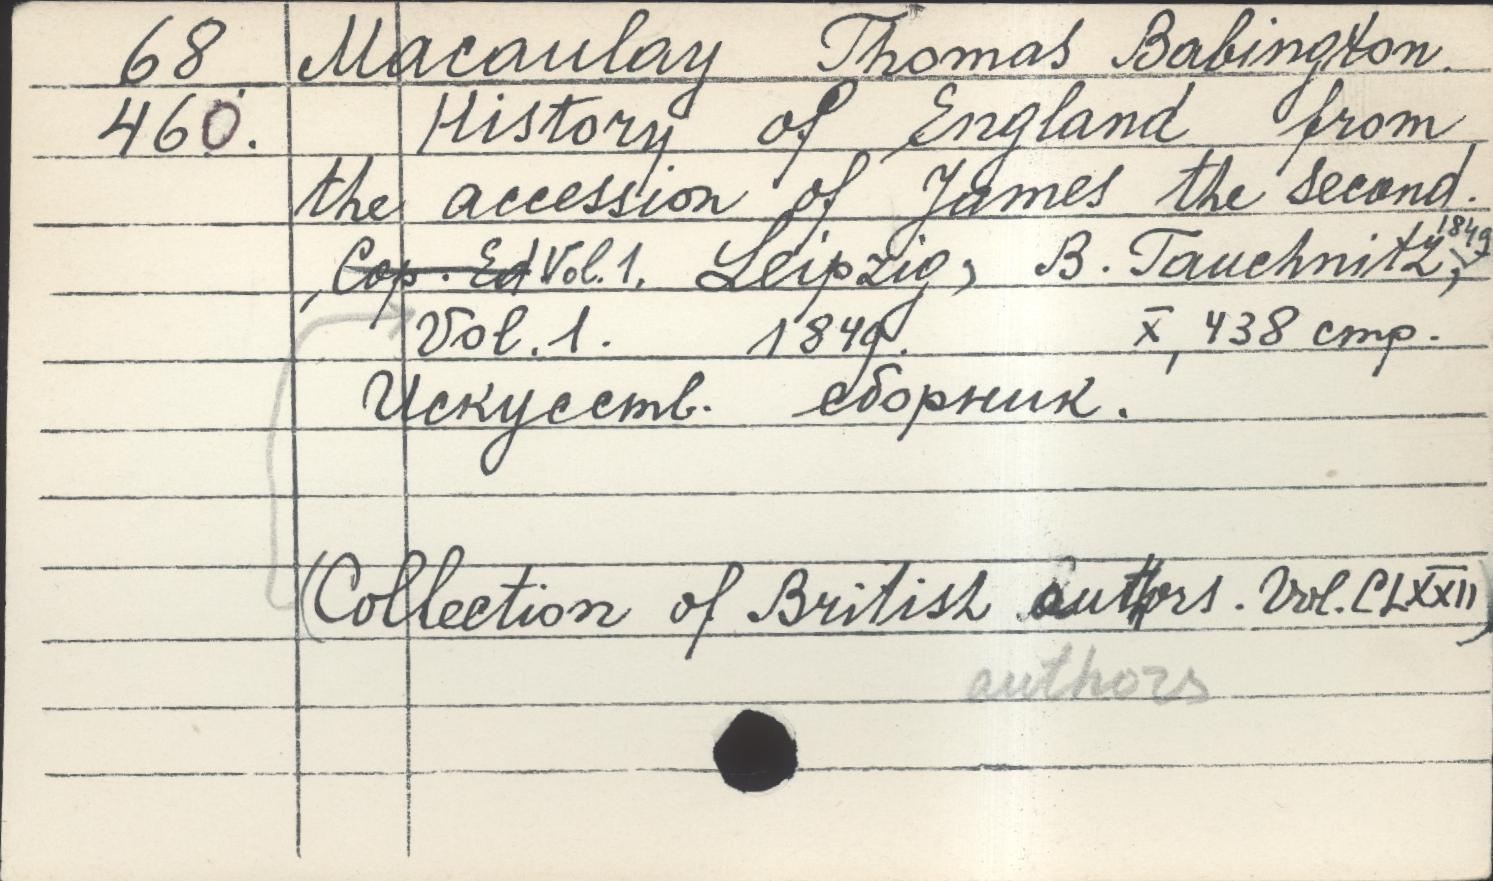 68 Macaulay Thomas Babington.
460. History of England from
the accession of James the second.
, Cop. Ed Vol. 1. Leipzig, B. Tauchnitz, 1849
Vol. 1. 1849. X, 438 стр.
Искусств. сборник.
(Collection of British authors. Vol. CLXXII)
authors